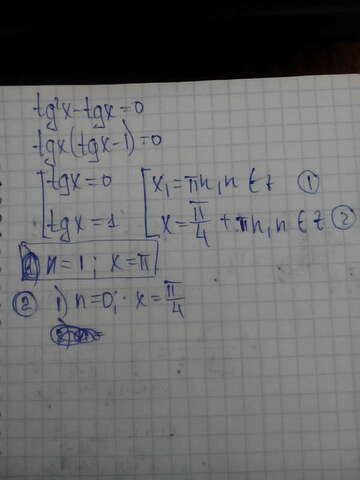 tg²x - tgx = 0
tgx(tgx-1) = 0
[tgx = 0 [x₁ = πn, n ∈ z ①
[tgx = 1 [x = π/4 + πn, n ∈ z ②
n = 1; x = π
② 1) n = 0; x = π/4